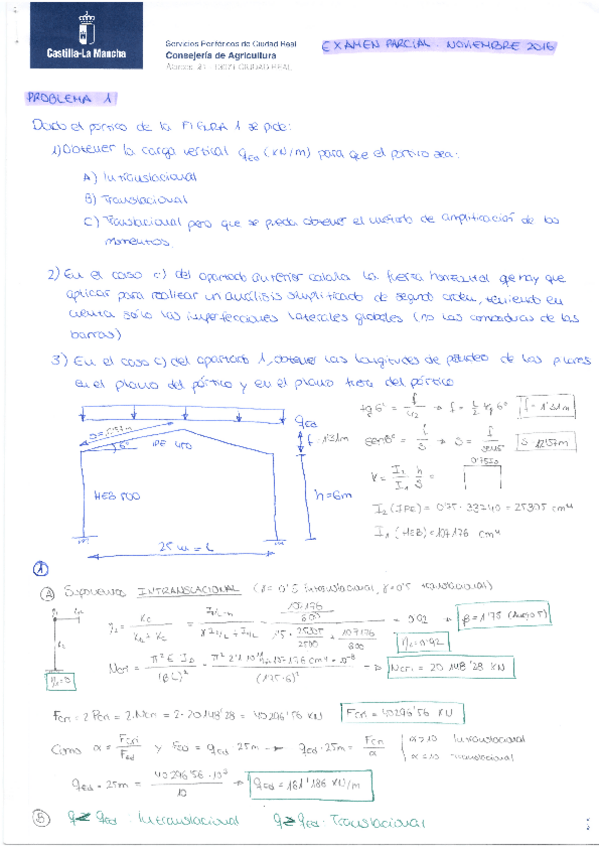 Castilla-La Mancha
Servicios Periféricos de Ciudad Real
Consejería de Agricultura
EXAMEN PARCIAL. NOVIEMBRE 2016
PROBLEMA 1
Dado el pórtico de la FIGURA 1 se pide:
1) Obtener la carga vertical qEd (KN/m) para que el pórtico sea:
A) Intraslacional
B) Traslacional
C) Traslacional pero que se pueda obtener el método de amplificación de los
momentos.
2) En el caso c) del apartado anterior calcula la fuerza horizontal que hay que
aplicar para realizar un análisis simplificado de segundo orden, teniendo en
cuenta sólo las imperfecciones laterales globales (no las combaduras de las
barras)
3) En el caso c) del apartado 1, obtener las longitudes de pandeo de los pilares
en el plano del pórtico y en el plano fuera del pórtico
qEd
f = 1'31m
6°
IPE 450
HEB 500
h=6m
25 m = L
tg 6° = f / L/2 → f = L/2 tg 6° f = 1'31m
sen 6° = f / S → S = f / sen 6° S = 12'57m
I2 (IPE) = 0'75 · 33740 = 25305 cm4
I1 (HEB) = 107176 cm4
1
A Suponemos INTRASLACIONAL
Ncr1 = 20148'28 KN
Fcr = 2 · Pcr = 2 · Ncr1 = 2 · 20148'28 = 40296'56 KN Fcr = 40296'56 KN
Como α = Fcr / Fed y FEd = qEd · 25m → qEd · 25m = Fcr / α
α>10 Intraslacional
α<10 Traslacional
qEd · 25m = 40296'56 · 10³ / 10 → qEd = 161'186 KN/m
B q < qEd : Intraslacional q > qEd : Traslacional